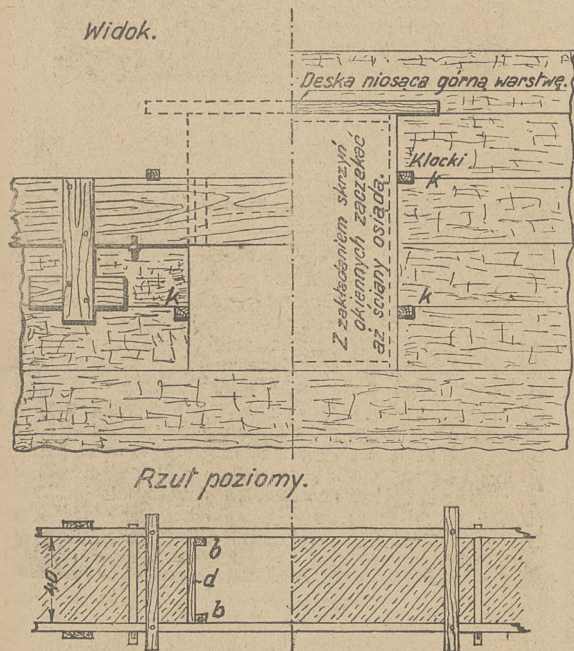 Widok.
Deska niosąca górną warstwę.
Klocki
k
Z zakładaniem skrzyń
okiennych zaczekać
aż ściany osiądą.
k
k
Rzut poziomy.
b
40
d
b